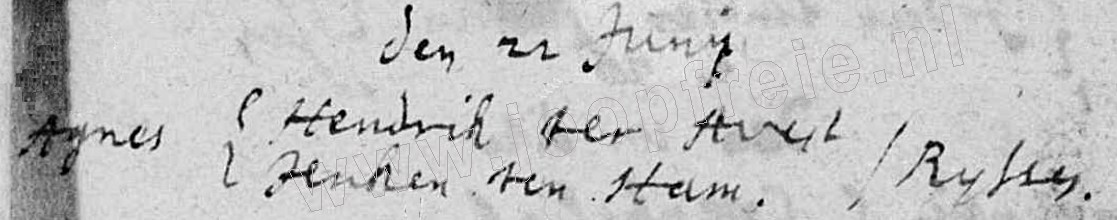 den 21 Junij
Agnes { Hendrik ter Avest
Jenken ten Ham. / Rysse,
www.joopfreie.nl